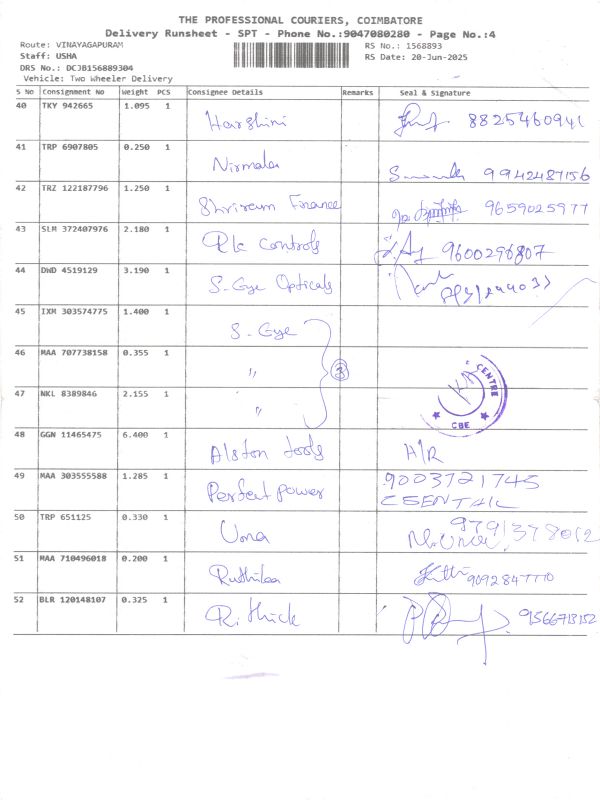 THE PROFESSIONAL COURIERS, COIMBATORE
Delivery Runsheet - SPT - Phone No.:9047080280 - Page No.:4
Route: VINAYAGAPURAM RS No.: 1568893
Staff: USHA RS Date: 20-Jun-2025
DRS No.: DCJB156889304
Vehicle: Two Wheeler Delivery
S No Consignment No Weight PCS Consignee Details Remarks Seal & Signature
40 TKY 942665 1.095 1 Harshini 8825460941
41 TRP 6907805 0.250 1 Nirmala 9942487156
42 TRZ 122187796 1.250 1 Shriram Finance 9659025977
43 SLM 372407976 2.180 1 Rk Controls 9600296807
44 DWD 4519129 3.190 1 S-Gye Opticals
45 IXM 303574775 1.400 1 S-Gye
46 MAA 707738158 0.355 1 " 3
47 NKL 8389846 2.155 1 " CENTRE CBE
48 GGN 11465475 6.400 1 Alston tools A/R
49 MAA 303555588 1.285 1 Perfect power 9003721745
50 TRP 651125 0.330 1 Uma 9791378012
51 MAA 710496018 0.200 1 Ruthika 9092847770
52 BLR 120148107 0.325 1 Rithick 9566713152